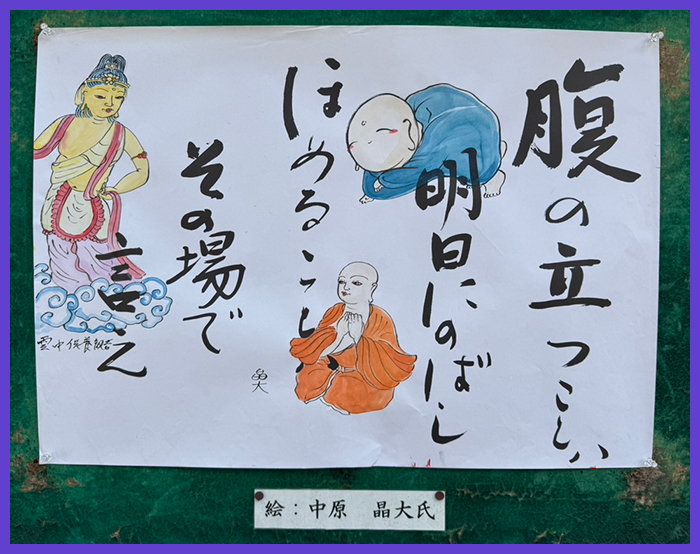 腹の立つことハ
明日にのばし
ほめること
その場で
言え
雲中供養菩薩
晶大
絵：中原　晶大氏